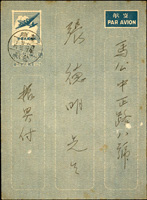 航空
PAR AVION
馬公中正路八號
張德明先生
振興付